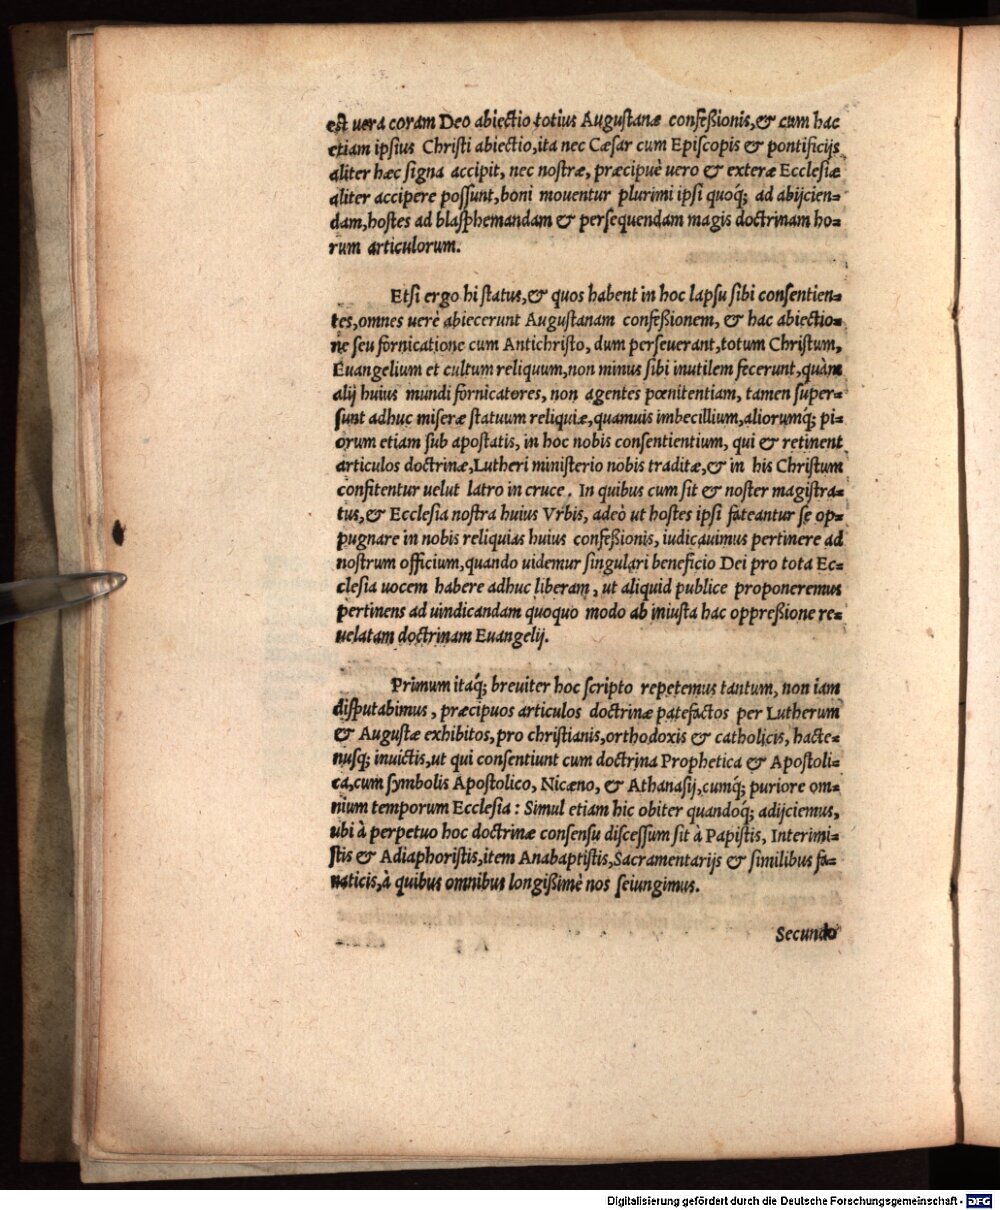 est uera coram Deo abiectio totius Augustanæ confeßionis, & cum hac
etiam ipsius Christi abiectio, ita nec Cæsar cum Episcopis & pontificijs
aliter hæc signa accipit, nec nostræ, præcipuè uero & exteræ Ecclesiæ
aliter accipere possunt, boni mouentur plurimi ipsi quoq; ad abijcien=
dam, hostes ad blasphemandam & persequendam magis doctrinam ho=
rum articulorum.
Etsi ergo hi status, & quos habent in hoc lapsu sibi consentien=
tes, omnes uerè abiecerunt Augustanam confeßionem, & hac abiectio=
ne seu fornicatione cum Antichristo, dum perseuerant, totum Christum,
Euangelium et cultum reliquum, non minus sibi inutilem fecerunt, quàm
alij huius mundi fornicatores, non agentes pœnitentiam, tamen super=
sunt adhuc miseræ statuum reliquiæ, quamuis imbecillium, aliorumq́; pi=
orum etiam sub apostatis, in hoc nobis consentientium, qui & retinent
articulos doctrinæ, Lutheri ministerio nobis traditæ, & in his Christum
confitentur uelut latro in cruce. In quibus cum sit & noster magistra=
tus, & Ecclesia nostra huius Vrbis, adeò ut hostes ipsi fateantur se op=
pugnare in nobis reliquias huius confeßionis, iudicauimus pertinere ad
nostrum officium, quando uidemur singulari beneficio Dei pro tota Ec=
clesia uocem habere adhuc liberam, ut aliquid publice proponeremus
pertinens ad uindicandam quoquo modo ab iniusta hac oppreßione re=
uelatam doctrinam Euangelij.
Primum itaq́; breuiter hoc scripto repetemus tantum, non iam
disputabimus, præcipuos articulos doctrinæ patefactos per Lutherum
& Augustæ exhibitos, pro christianis, orthodoxis & catholicis, hacte=
nusq; inuictis, ut qui consentiunt cum doctrina Prophetica & Apostoli=
ca, cum symbolis Apostolico, Nicæno, & Athanasij, cumq́; puriore om=
nium temporum Ecclesia: Simul etiam hic obiter quandoq́; adijciemus,
ubi à perpetuo hoc doctrinæ consensu discessum sit à Papistis, Interimi=
stis & Adiaphoristis, item Anabaptistis, Sacramentarijs & similibus fa=
naticis, à quibus omnibus longißimè nos seiungimus.
Secundo
Digitalisierung gefördert durch die Deutsche Forschungsgemeinschaft - DFG